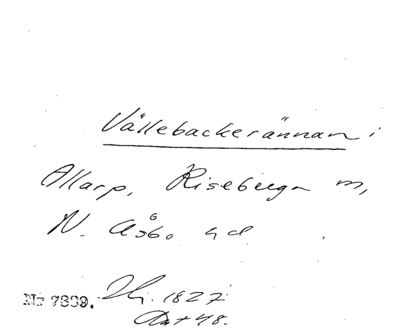 Vällebackerännan i
Allarp, Riseberga sn,
N. Åsbo hd
Nr 7839. 1827
Akt 48.